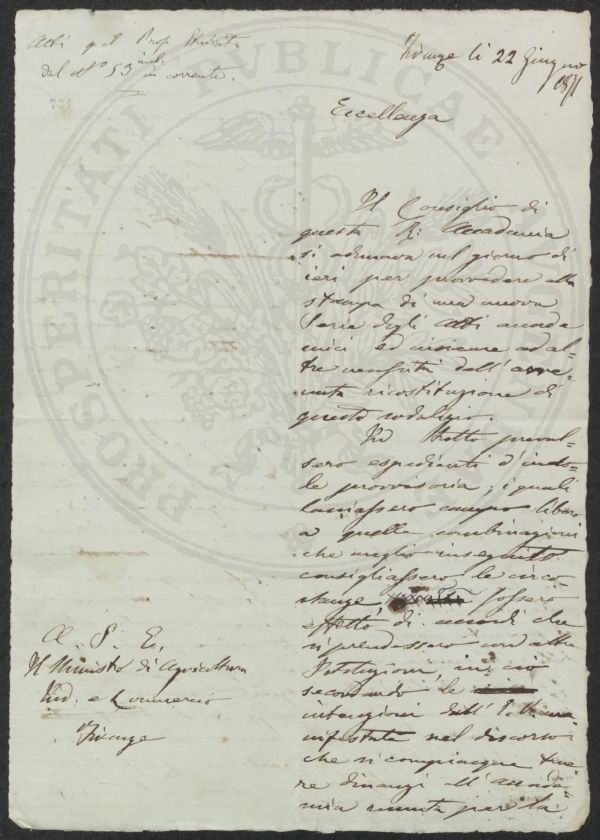 Atti pel Prof. Studiati
dal N.° 53 in corrente.
731
Firenze li 22 Giugno
1871
Eccellenza
Il Consiglio di
questa R. Accademia
si adunava nel giorno di
ieri per provvedere alla
stampa di una nuova
Serie degli Atti accade
mici ed insieme ad al-
tre necessità dell'avve-
nuta ricostituzione di
questo sodalizio.
Ivi tosto preval-
sero espedienti d'indo-
le provvisoria, i quali
lasciassero campo libero
a quelle combinazioni
che meglio in seguito
consigliassero le circo-
stanze, fossero
effetto di accordi che
si prendessero con altre
Istituzioni, in ciò
secondando le
intenzioni dell'E. V. ma
nifestate nel discorso
che si compiacque tene
re dinanzi all'accade-
mia riunita per la
A. S. E.
Il Ministro di Agricoltura
Ind. e Commercio
Firenze
PROSPERITATI PUBLICAE AUGENDAE